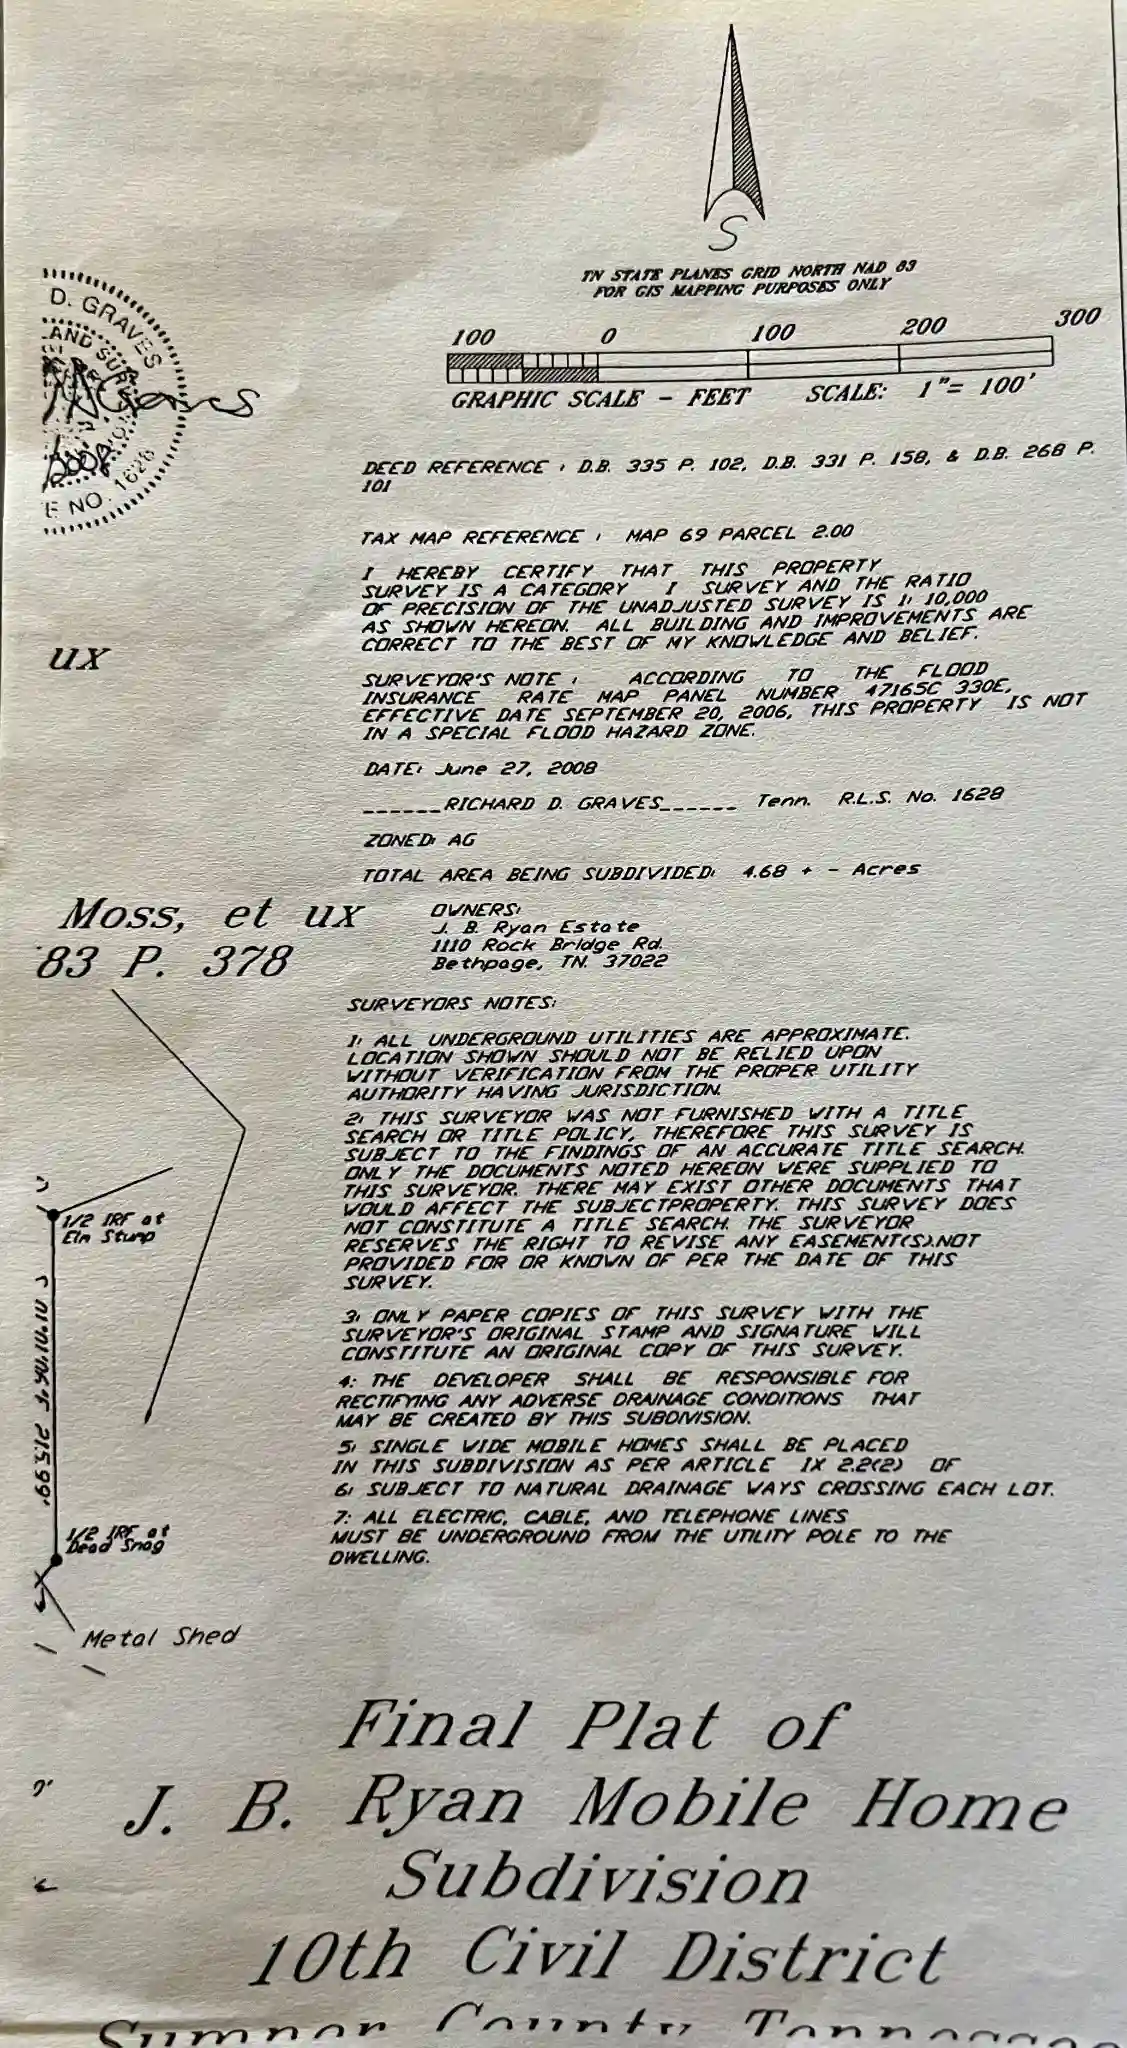 S
TN STATE PLANES GRID NORTH NAD 83
FOR GIS MAPPING PURPOSES ONLY
100 0 100 200 300
GRAPHIC SCALE - FEET SCALE: 1"= 100'
D. GRAVES
AND SURV
Graves
2008
E NO. 1628
DEED REFERENCE : D.B. 335 P. 102, D.B. 331 P. 158, & D.B. 268 P.
101
TAX MAP REFERENCE : MAP 69 PARCEL 2.00
I HEREBY CERTIFY THAT THIS PROPERTY
SURVEY IS A CATEGORY I SURVEY AND THE RATIO
OF PRECISION OF THE UNADJUSTED SURVEY IS 1: 10,000
AS SHOWN HEREON. ALL BUILDING AND IMPROVEMENTS ARE
CORRECT TO THE BEST OF MY KNOWLEDGE AND BELIEF.
ux
SURVEYOR'S NOTE : ACCORDING TO THE FLOOD
INSURANCE RATE MAP PANEL NUMBER 47165C 330E,
EFFECTIVE DATE SEPTEMBER 20, 2006, THIS PROPERTY IS NOT
IN A SPECIAL FLOOD HAZARD ZONE.
DATE: June 27, 2008
______RICHARD D. GRAVES______ Tenn. R.L.S. No. 1628
ZONED: AG
TOTAL AREA BEING SUBDIVIDED: 4.68 + - Acres
Moss, et ux
83 P. 378
OWNERS:
J. B. Ryan Estate
1110 Rock Bridge Rd.
Bethpage, TN. 37022
SURVEYORS NOTES:
1: ALL UNDERGROUND UTILITIES ARE APPROXIMATE.
LOCATION SHOWN SHOULD NOT BE RELIED UPON
WITHOUT VERIFICATION FROM THE PROPER UTILITY
AUTHORITY HAVING JURISDICTION.
2: THIS SURVEYOR WAS NOT FURNISHED WITH A TITLE
SEARCH OR TITLE POLICY, THEREFORE THIS SURVEY IS
SUBJECT TO THE FINDINGS OF AN ACCURATE TITLE SEARCH.
ONLY THE DOCUMENTS NOTED HEREON WERE SUPPLIED TO
THIS SURVEYOR. THERE MAY EXIST OTHER DOCUMENTS THAT
WOULD AFFECT THE SUBJECTPROPERTY. THIS SURVEY DOES
NOT CONSTITUTE A TITLE SEARCH. THE SURVEYOR
RESERVES THE RIGHT TO REVISE ANY EASEMENT(S).NOT
PROVIDED FOR OR KNOWN OF PER THE DATE OF THIS
SURVEY.
3: ONLY PAPER COPIES OF THIS SURVEY WITH THE
SURVEYOR'S ORIGINAL STAMP AND SIGNATURE WILL
CONSTITUTE AN ORIGINAL COPY OF THIS SURVEY.
4: THE DEVELOPER SHALL BE RESPONSIBLE FOR
RECTIFYING ANY ADVERSE DRAINAGE CONDITIONS THAT
MAY BE CREATED BY THIS SUBDIVISION.
5: SINGLE WIDE MOBILE HOMES SHALL BE PLACED
IN THIS SUBDIVISION AS PER ARTICLE IX 2.2(2) OF
6: SUBJECT TO NATURAL DRAINAGE WAYS CROSSING EACH LOT.
7: ALL ELECTRIC, CABLE, AND TELEPHONE LINES
MUST BE UNDERGROUND FROM THE UTILITY POLE TO THE
DWELLING.
1/2 IRF at
Elm Stump
215.99'
1/2 IRF at
Dead Snag
Metal Shed
Final Plat of
J. B. Ryan Mobile Home
Subdivision
10th Civil District
Sumner County Tennessee